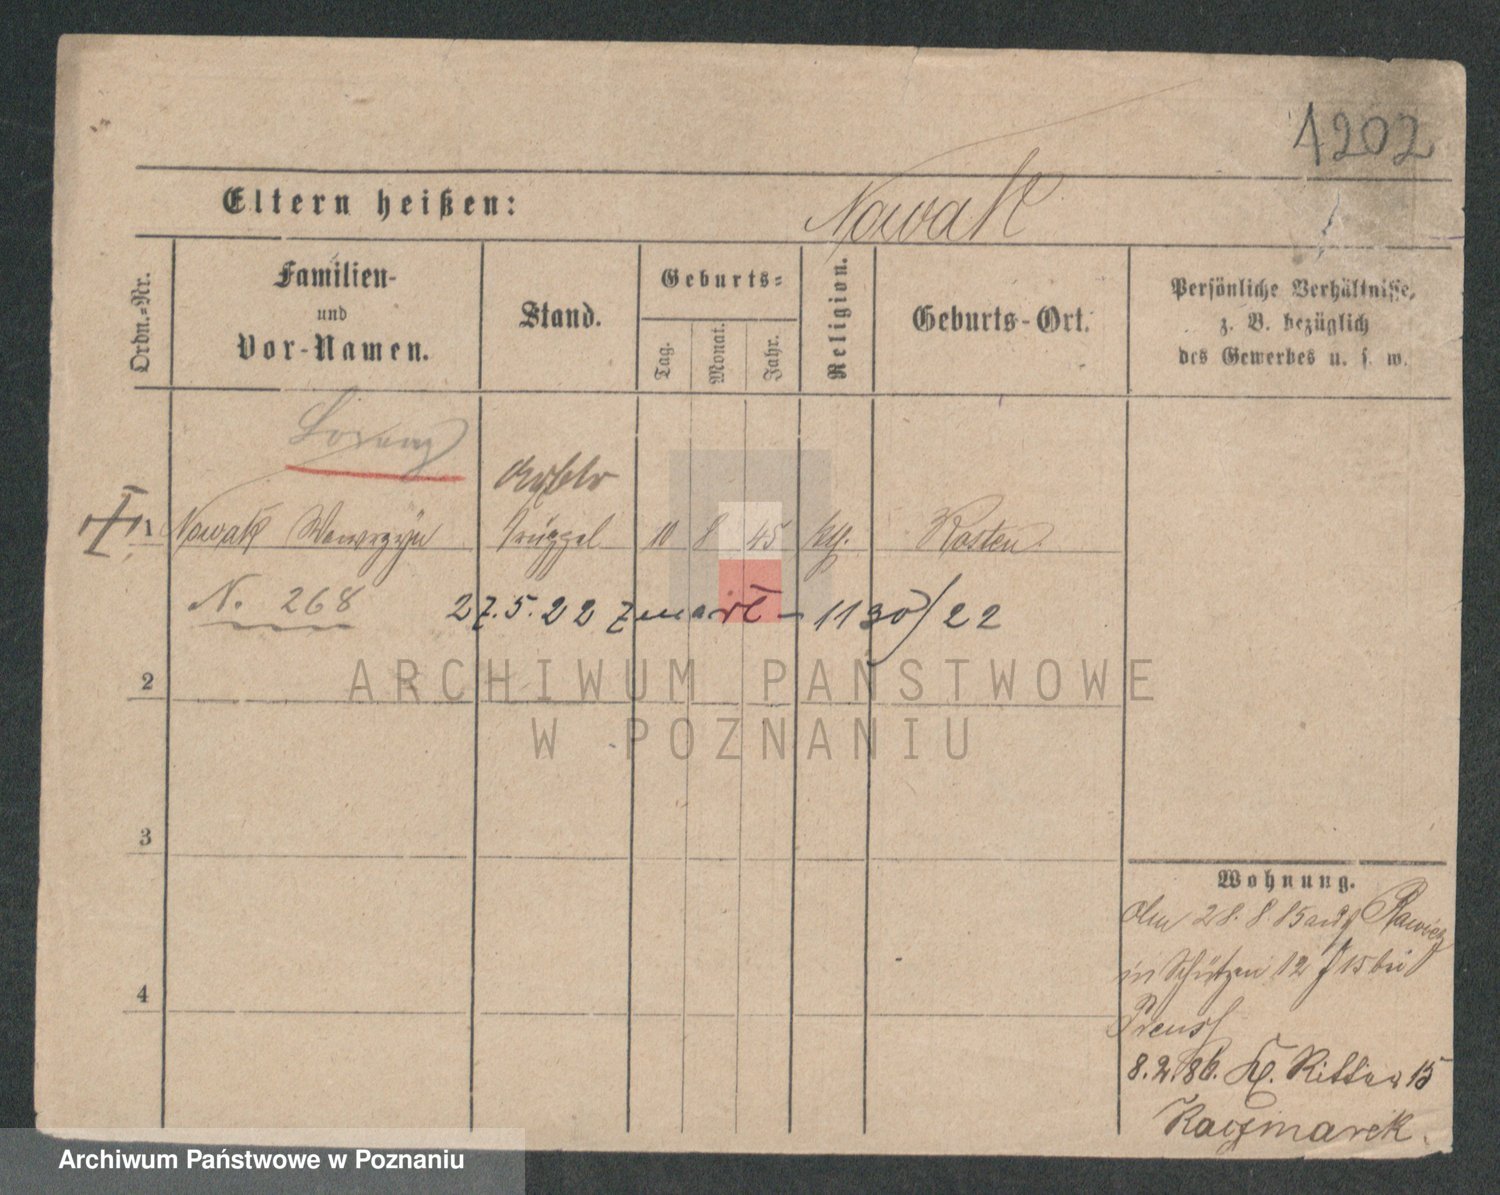 1202
Eltern heißen: Nowak
Ordn.-Nr.
Familien-
und
Vor-Namen.
Stand.
Geburts-
Tag.
Monat.
Jahr.
Religion.
Geburts-Ort.
Persönliche Verhältnisse,
z. B. bezüglich
des Gewerbes u. s. w.
Lorenz
1 Nowak Wawrzyn 10 8 45 Kosten
N. 268
27.5.22 zmarł - 1130/22
2
3
4
Wohnung.
28.8.85 aus Rawicz
in Schützen 12 bei
Preuss
8.2.86. Kl. Ritter 15
Kaczmarek.
ARCHIWUM PAŃSTWOWE
W POZNANIU
Archiwum Państwowe w Poznaniu